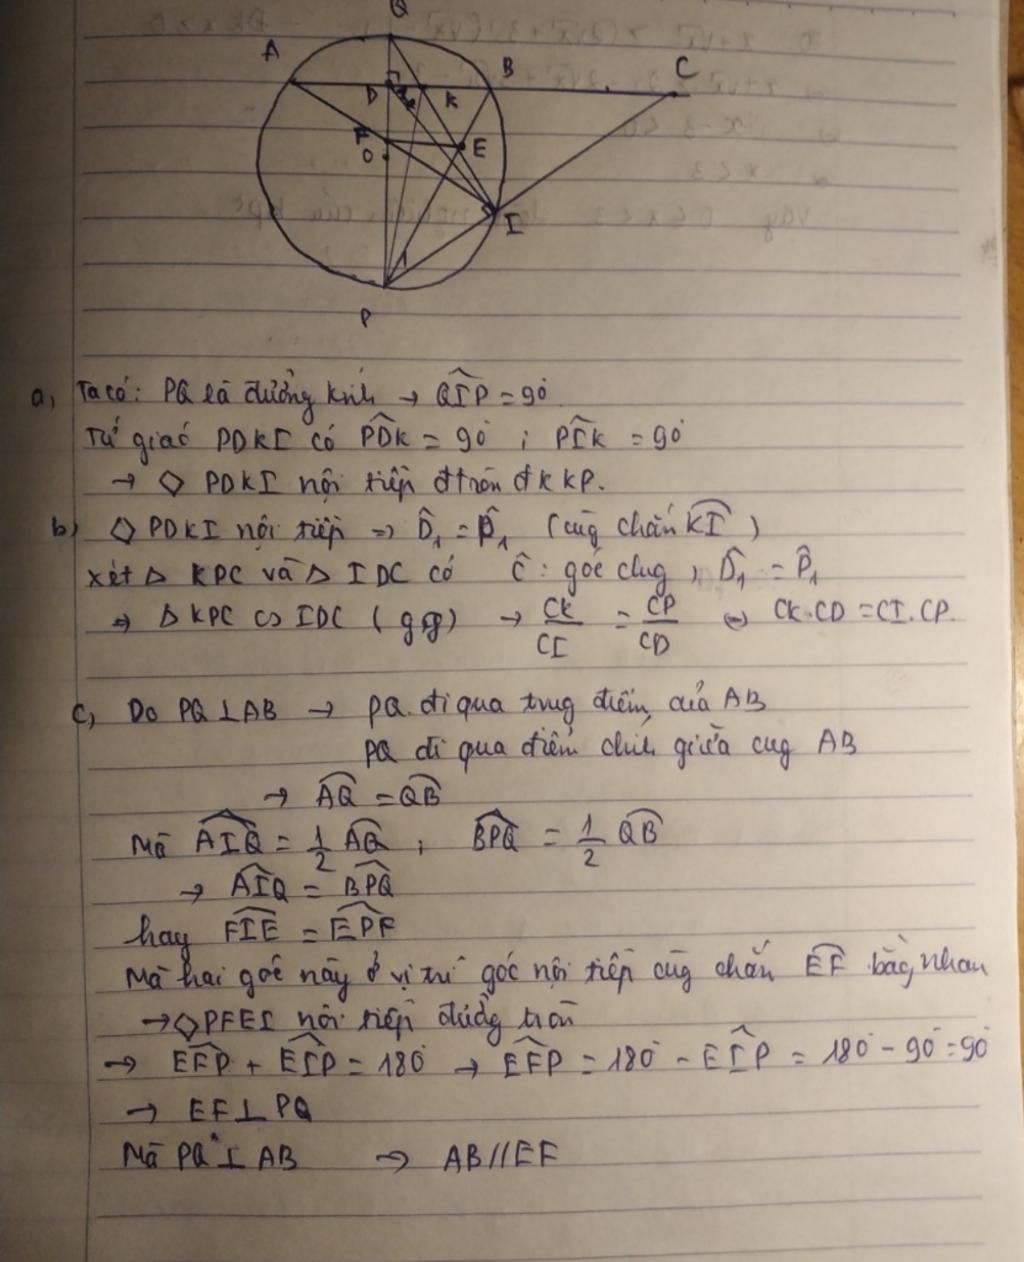 Q
A
B
C
D
K
F
E
O
I
1
P
a, Ta có: PQ là đường kính → QIP = 90°
Tứ giác PDKI có PDK = 90° ; PIK = 90°
→ ◇ PDKI nội tiếp đtròn đk KP.
b) ◇ PDKI nội tiếp => D₁ = P₁ (cùg chắn KI)
xét Δ KPC và Δ IDC có C : góc chug , D₁ = P₁
=> Δ KPC ∽ IDC (g.g) → CK/CI = CP/CD <=> CK.CD = CI.CP.
c, Do PQ ⊥ AB → PQ đi qua trug điểm của AB
PQ đi qua điểm chíh giữa cug AB
→ AQ = QB
Mà AIQ = 1/2 AQ ; BPQ = 1/2 QB
→ AIQ = BPQ
hay FIE = EPF
Mà hai góc này ở vị trí góc nội tiếp cùg chắn EF bằg nhau
→ ◇ PFEI nội tiếp đườg tròn
→ EFP + EIP = 180° → EFP = 180° - EIP = 180° - 90° = 90°
→ EF ⊥ PQ
Mà PQ ⊥ AB → AB // EF